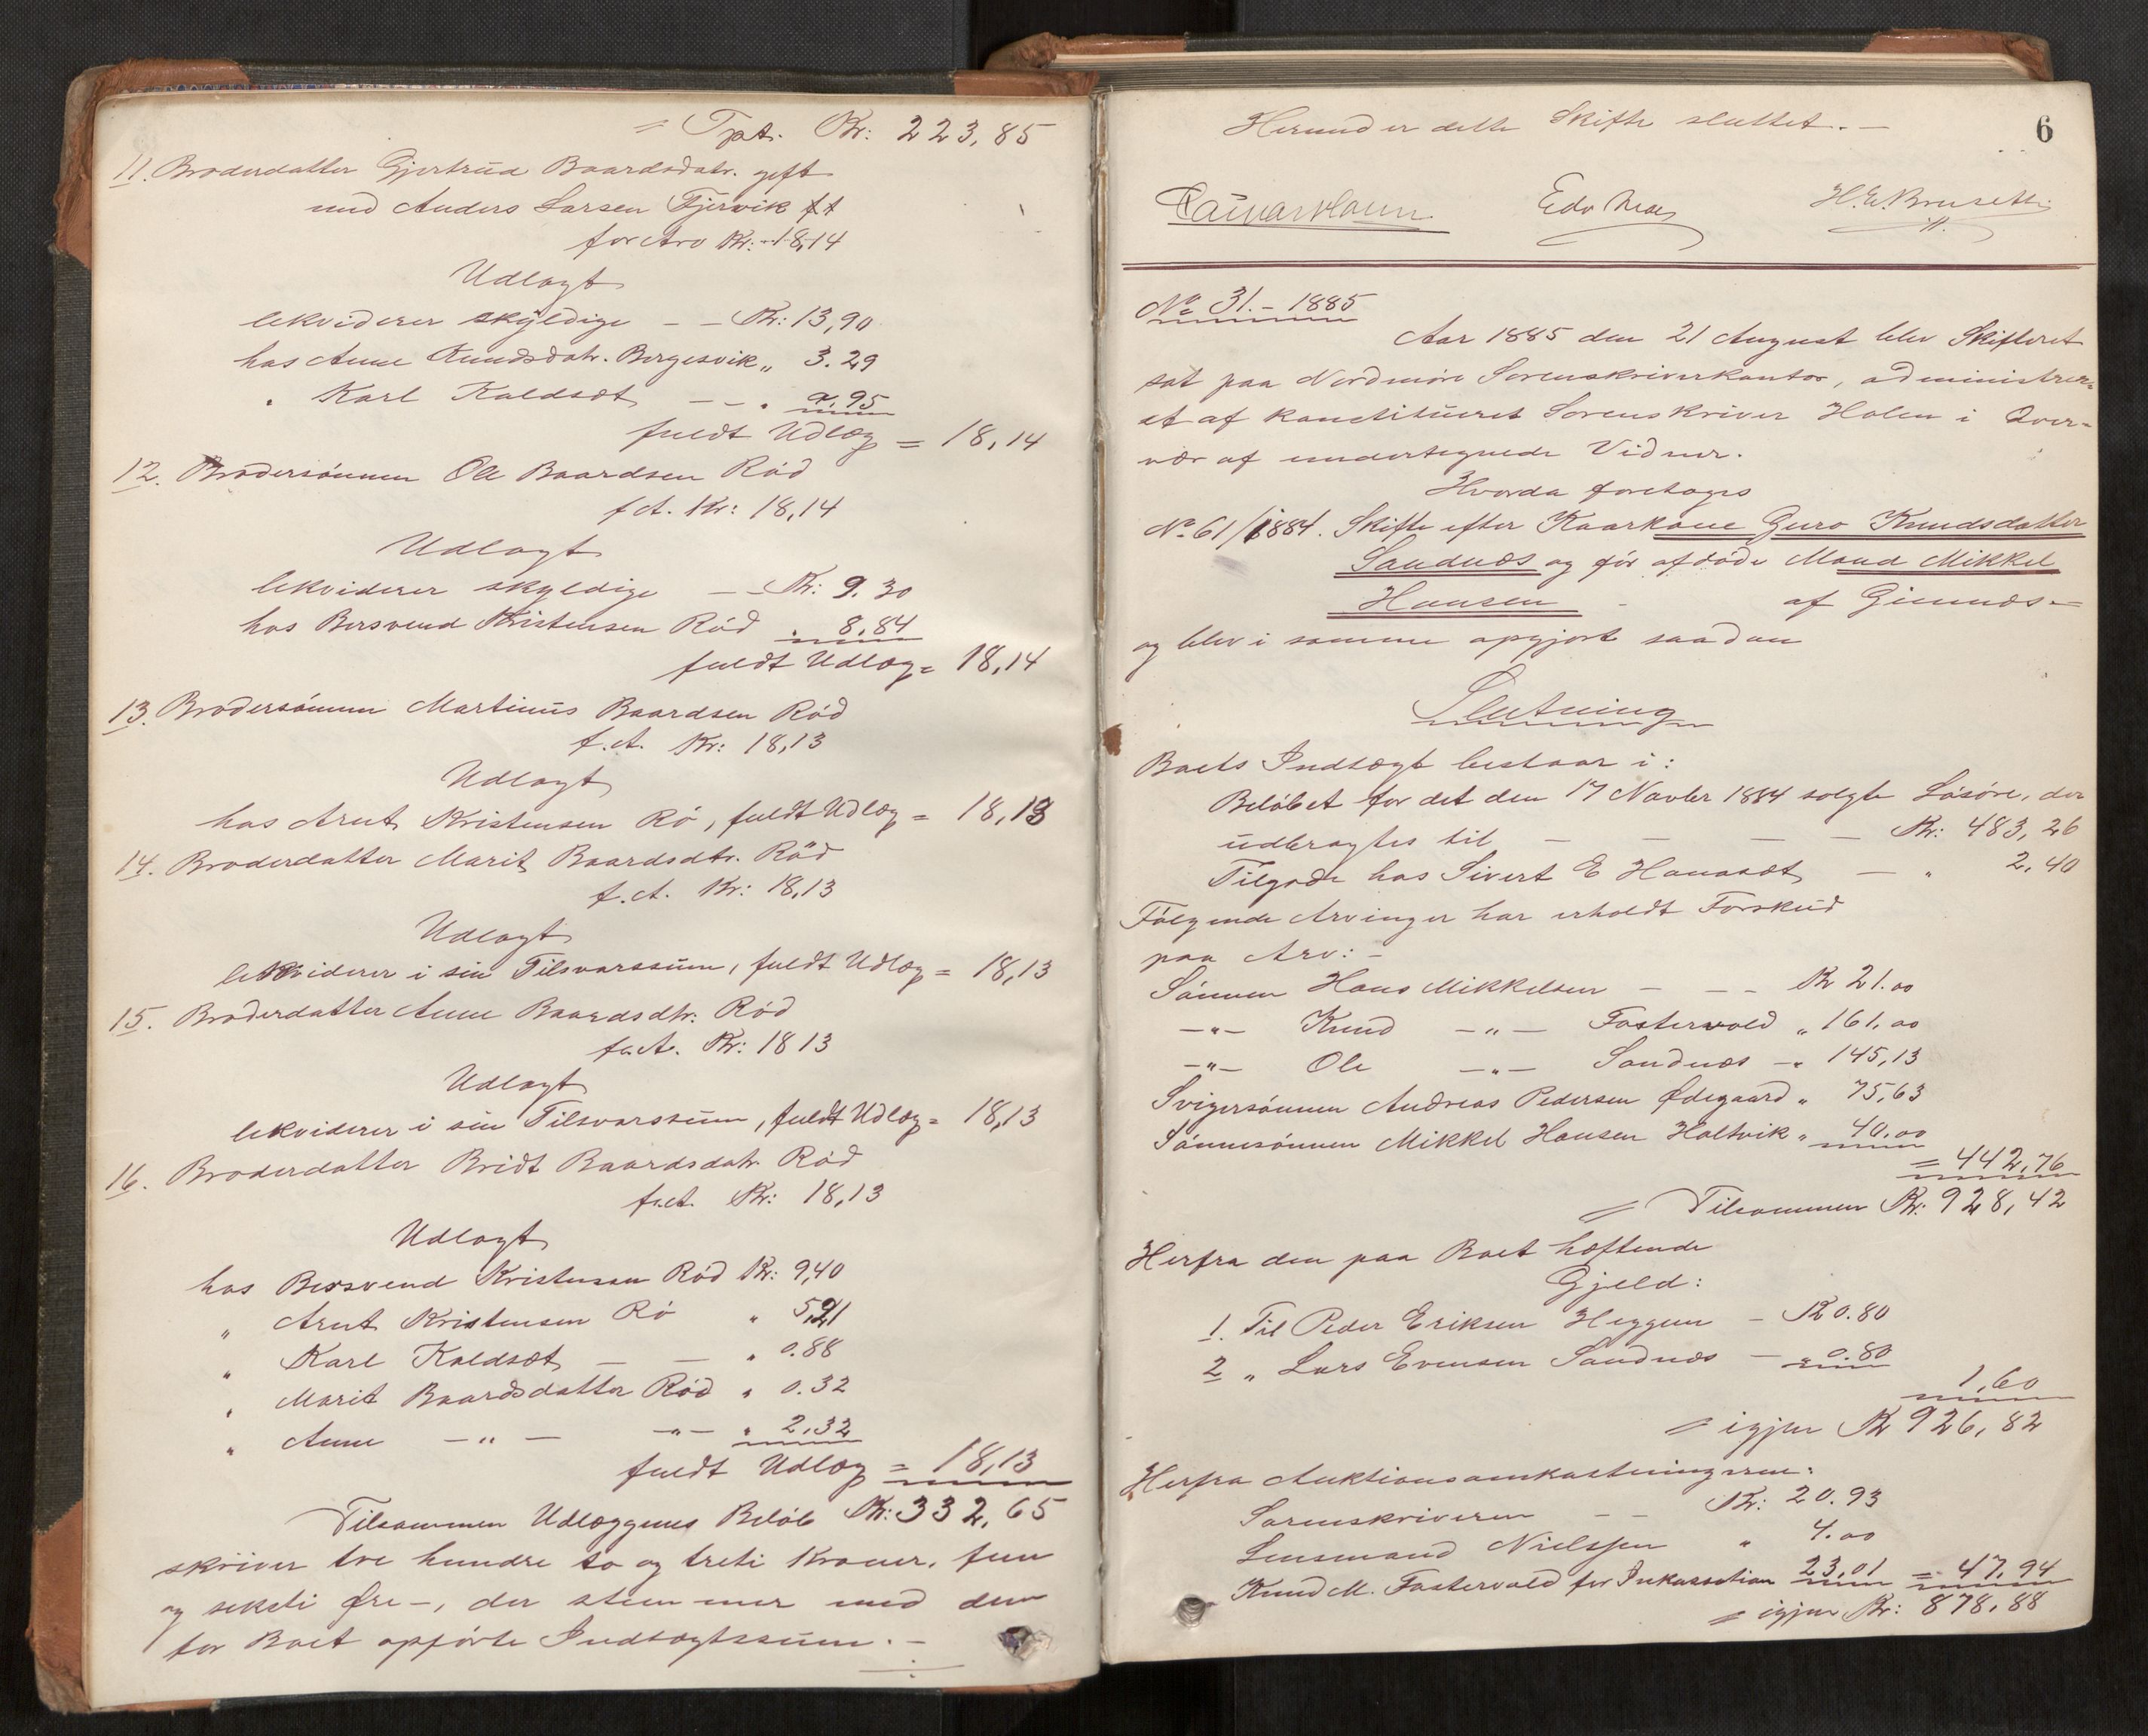 = Tpt. Kr: 223,85
11. Broderdatter Gjertrud Baardsdatr. gift
med Anders Larsen Fjervik ft
for Arv Kr: 18,14
Udlagt
lekviderer skyldige — — Kr: 13,90
hos Anne Knudsdatr. Bergesvik „ 3.29
„ Karl Kaldsæt — — „ 0.95
fuldt Udlæg = 18,14
12. Brodersönnen Ole Baardsen Röd
f A. Kr: 18,14
Udlagt
lekviderer skyldige — — Kr: 9.30
hos Bersvend Kristensen Röd „ 8,84
fuldt Udlæg = 18,14
13. Brodersönnen Martinus Baardsen Röd
f. A. Kr: 18,13
Udlagt
hos Arnt Kristensen Rö, fuldt Udlæg = 18,13
14. Broderdatter Marit Baardsdtr. Röd
f. A. Kr: 18,13
Udlagt
lekviderer i sin Tilsvarssum, fuldt Udlæg = 18,13
15. Broderdatter Anne Baardsdtr. Röd
f. A. Kr: 18 13
Udlagt
lekviderer i sin Tilsvarssum, fuldt Udlæg = 18,13
16. Broderdatter Bridt Baardsdatr Röd
f. A. Kr: 18,13
Udlagt
hos Bersvend Kristensen Röd Kr: 9,40
„ Arnt Kristensen Rö „ 5,21
„ Karl Kaldsæt — — „ 0.88
„ Marit Baardsdatter Röd „ 0.32
„ Anne — „ — — „ — „ 2,32
fuldt Udlæg = 18,13
Tilsammen Udlæggenes Belöb Kr: 332,65
skriver tre hundre to og treti Kroner, fem
og seksti Øre —, der stemmer med den
for Boet opförte Indtægtssum. —
Herunder dette Skifte sluttet. —
6
H. E. Brusett
No 31. — 1885
Aar 1885 den 21 August blev Skifteret
sat paa Nordmöre Sorenskriverkontor, administrer-
et af konstitueret Sorenskriver Holen i Over-
vær af undertegnede Vidner.
Hvorda foretoges
No. 61/1884. Skifte efter Kaarkone Guro Knudsdatter
Sandnæs og för afdöde Mand Mikkel
Hansen — af Gimnæs —
og blev i samme opgjort saadan
Slutning
Boets Indtægt bestaar i:
Belöbet for det den 17 Novbr 1884 solgte Lösöre, der
udbragtes til — — — — Kr: 483,26
Tilgode hos Sivert E Hanasæt — „ 2,40
Fölgende Arvinger har erholdt Forskud
paa Arv: —
Sönnen Hans Mikkelsen — — — Kr 21.00
— „ — Knud — „ — Fostervold „ 161,00
— „ — Ole — „ — Sandnæs — „ 145,13
Svigersönnen Andreas Pedersen Ødegaard „ 75,63
Sönnesönnen Mikkel Hansen Holtvik „ 40.00
= 442,76
= Tilsammen Kr: 928,42
Herfra den paa Boet hæftende
Gjeld:
1. Til Peder Eriksen Heggem — Kr 0.80
2 „ Lars Evensen Sandnæs — „ 0.80
1,60
= igjen Kr 926,82
Herfra Auktionsomkostningerne:
Sorenskriveren — — Kr: 20.93
Lensmand Nielssen „ 4.00
Knud M. Fostervold for Inkassation 23,01 = 47,94
= igjen Kr: 878,88